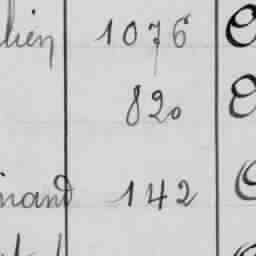 lien 1076
820
nand 142